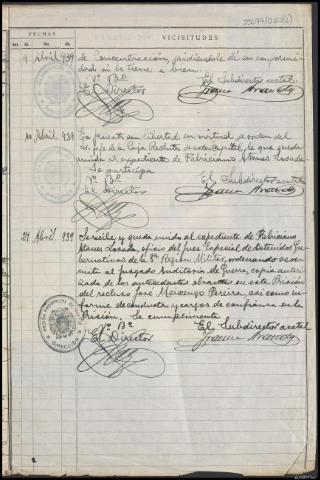 25077/020(2)
FECHAS
VICISITUDES
Día Mes Año
9 Abril 939 de Concentración, pidiéndole dé su conformi-
dad si lo tiene a bien.
Vº Bº El Subdirector acctal
El Director
10 Abril 939 Es puesto en libertad en virtud de orden del
Sr. Jefe de la Caja Recluta de esta Capital, de que queda
unido al expediente de Fabriciano Atanes Losada.
Se participa
Vº Bº El Subdirector acctal
El Director
21 Abril 939 Se recibe y queda unido al expediente de Fabriciano
Atanes Losada, oficio del Juez Especial de Detenidos Gu-
bernativos de la 8ª Region Militar, ordenando se re-
mita al Juzgado Auditoria de Guerra, copia autori-
zada de los antecedentes obrantes en esta Prisión
del recluso José Meixengo Pereira, asi como in-
forme de conducta y cargos de confianza en la
Prisión. Se cumplimenta
Vº Bº El Subdirector acctal
El Director